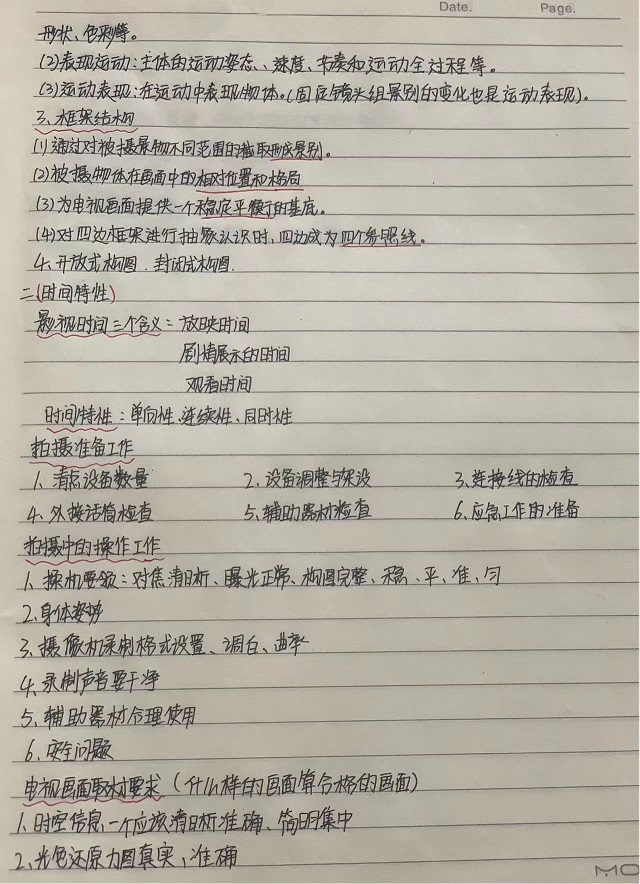 Date. Page.
形状、色彩等。
(2)表现运动:主体的运动姿态、速度、节奏和运动全过程等。
(3)运动表现:在运动中表现物体。(固定镜头组景别的变化也是运动表现)。
3、框架结构
(1)通过对被摄景物不同范围的截取形成景别。
(2)被摄物体在画面中的相对位置和格局
(3)为电视画面提供一个稳定平衡的基底。
(4)对四边框架进行抽象认识时,四边成为四个参照线。
4、开放式构图.封闭式构图.
二(时间特性)
影视时间三个含义:放映时间
剧情展示的时间
观看时间
时间特性:单向性、连续性、同时性
拍摄准备工作
1、清点设备数量 2、设备调整与架设 3、连接线的检查
4、外接话筒检查 5、辅助器材检查 6、应急工作的准备
拍摄中的操作工作
1、操机要领:对焦清晰、曝光正常、构图完整、稳、平、准、匀
2、身体姿势
3、摄像机录制格式设置、调白、曲率
4、录制声音要干净
5、辅助器材合理使用
6、安全问题
电视画面取材要求(什么样的画面算合格的画面)
1、时空信息一个应该清晰准确、简明集中
2、光色还原力图真实,准确